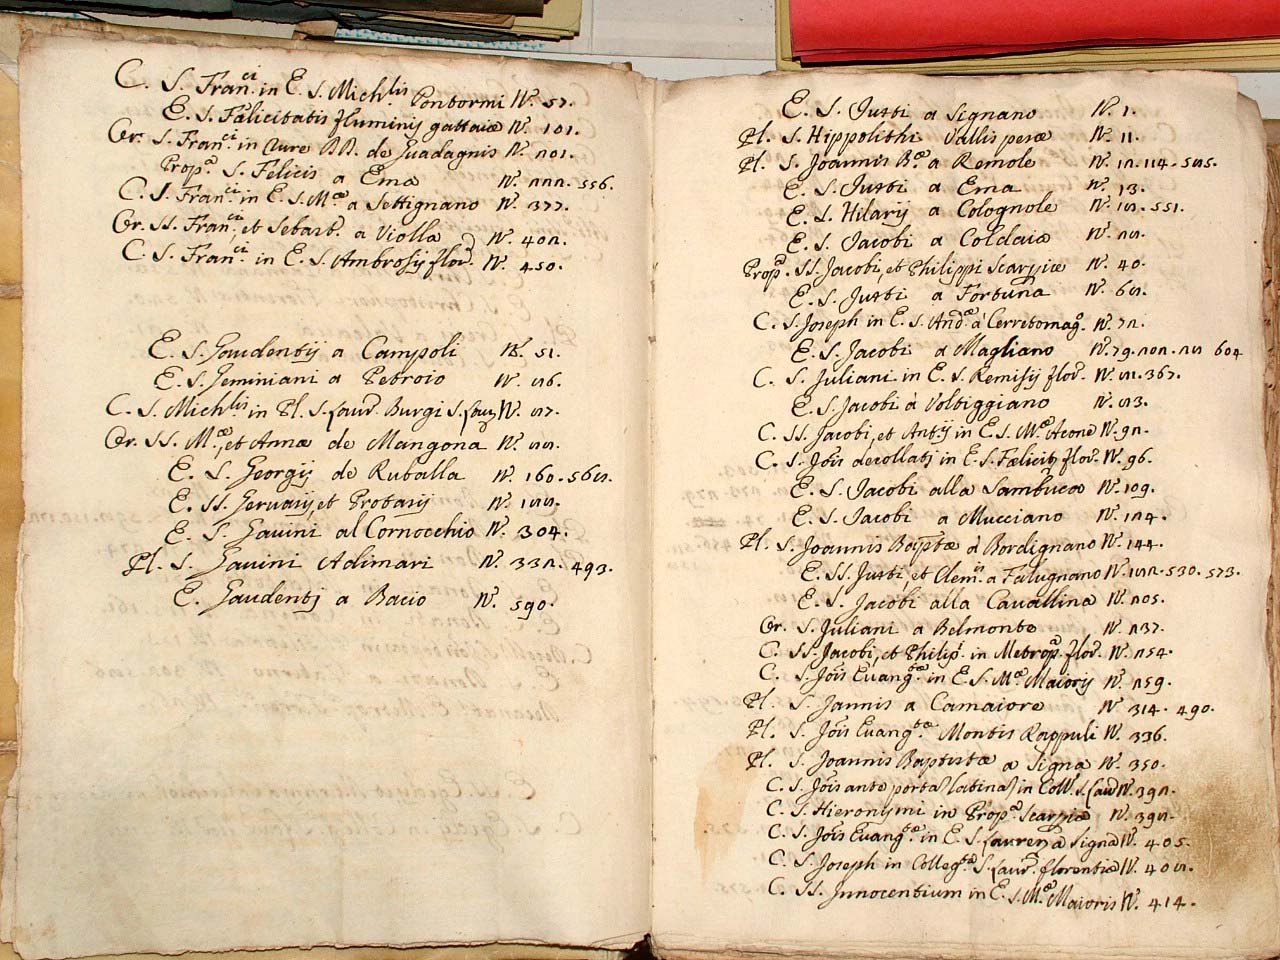 C. S. Fran.ci in E. S. Mich.lis Pontormi N.º 57.
E. S. Fælicitatis fluminis gattaiæ N.º 101.
Or. S. Fran.ci in Rure DD. de Guadagnis N.º 201.
Prop.a S. Felicis a Ema N.º 222. 556.
C. S. Fran.ci in E. S. M.æ a Settignano N.º 377.
Or. SS. Fran.ci, et Sebast. a Violla N.º 402.
C. S. Fran.ci in E. S. Ambrosij flor. N.º 450.
E. S. Gaudentij a Campoli N.º 51.
E. S. Geminiani a Petroio N.º 56.
C. S. Mich.lis in Pl. S. Laur. Burgi S. Laur. N.º 57.
Or. SS. M.æ, et Annæ de Mangona N.º
E. S. Georgij de Ruballa N.º 160. 565.
E. SS. Gervasij, et Protasij N.º 155.
E. S. Gavini al Cornocchio N.º 304.
Pl. S. Gavini Adimari N.º 332. 493.
E. Gaudentij a Bacio N.º 590.
E. S. Justi a Signano N. 1.
Pl. S. Hippolithi Vallis pesæ N.º 11.
Pl. S. Joannis B.æ a Remole N.º 12. 114. 525.
E. S. Justi a Ema N.º 13.
E. S. Hilarij a Colognole N.º 15. 551.
E. S. Jacobi a Coldaia N.º 25.
Prop.a SS. Jacobi, et Philippi Scarpiæ N.º 40.
E. S. Justi a Fortuna N.º 65.
C. S. Joseph in E. S. And.æ a Cerritomag. N.º 72.
E. S. Jacobi a Magliano N.º 79. 202. 225 604
C. S. Juliani in E. S. Remisij flor. N.º 52. 367.
E. S. Jacobi a Voltiggiano N.º 53.
C. SS. Jacobi, et Antij in E. S. M.æ Acone N.º 92.
C. S. Jois decollati in E. S. Fælicit. flor. N.º 96.
E. S. Jacobi alla Sambuca N.º 109.
E. S. Jacobi a Mucciano N.º 124.
Pl. S. Joannis Baptæ a Bordignano N.º 144.
E. SS. Justi, et Clem.ti a Falugnano N.º 152. 530. 573.
E. S. Jacobi alla Cavallina N.º 205.
Or. S. Juliani a Belmonte N.º 237.
C. SS. Jacobi, et Philip.i in Metrop.a flor. N.º 254.
C. S. Jois Euang.tæ in E. S. M.æ Maioris N.º 259.
Pl. S. Jannis a Camaiore N.º 314. 490.
Pl. S. Jois Euang.tæ Montis Rappuli N.º 336.
Pl. S. Joannis Baptistæ a Signa N.º 350.
C. S. Jois ante porta latina in Coll. S. Laur. N.º 392.
C. S. Hieronymi in Prop.a Scarpiæ N.º 395.
C. S. Jois Euang.tæ in E. S. Laurenz. a Signa N.º 405.
C. S. Joseph in Colleg.ta S. Laur. florentiæ N.º 405.
C. SS. Innocentium in E. S. M.æ Maioris N.º 414.